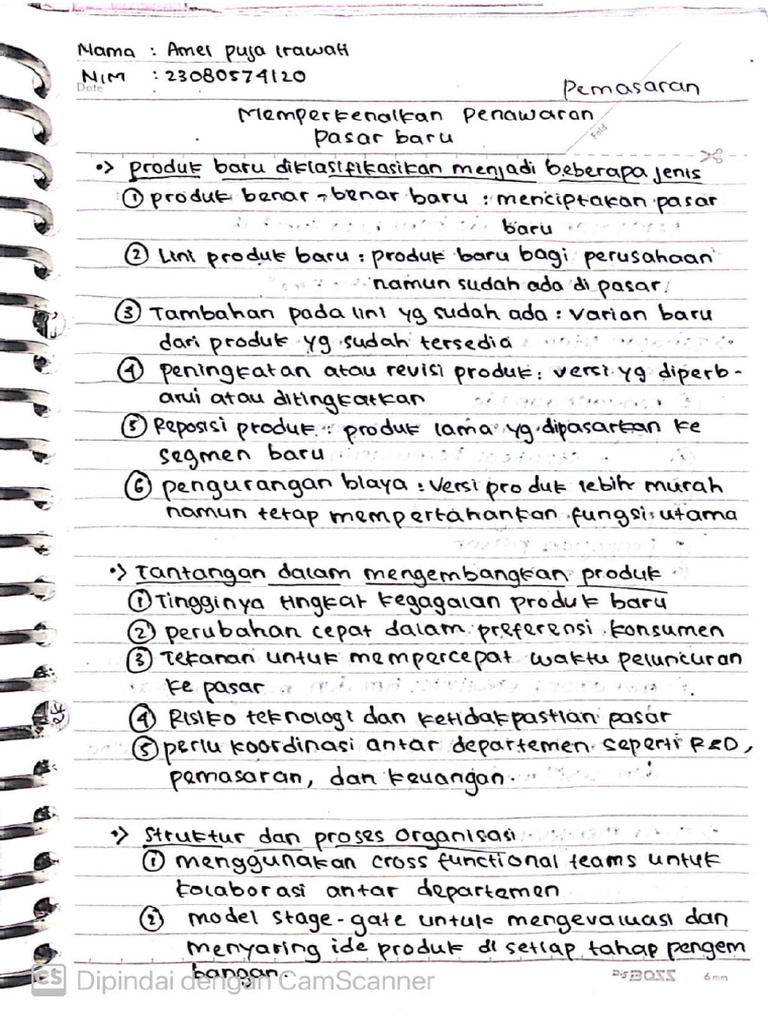 Nama : Amel Puja Irawati
NIM : 23080574120
Date
Pemasaran
Memperkenalkan Penawaran
Pasar baru
Fold
•> produk baru diklasifikasikan menjadi beberapa jenis
① produk benar-benar baru : menciptakan pasar
baru
② Lini produk baru : produk baru bagi perusahaan
namun sudah ada di pasar.
③ Tambahan pada lini yg sudah ada : varian baru
dari produk yg sudah tersedia
④ peningkatan atau revisi produk : versi yg diperb-
arui atau ditingkatkan
⑤ Reposisi produk : produk lama yg dipasarkan ke
segmen baru
⑥ pengurangan biaya : versi produk lebih murah
namun tetap mempertahankan fungsi utama
•> Tantangan dalam mengembangkan produk
① Tingginya tingkat kegagalan produk baru
② perubahan cepat dalam preferensi konsumen
③ Tekanan untuk mempercepat waktu peluncuran
ke pasar
④ Risiko teknologi dan ketidakpastian pasar
⑤ perlu koordinasi antar departemen seperti R&D,
pemasaran, dan keuangan.
•> Struktur dan proses organisasi
① menggunakan cross functional teams untuk
kolaborasi antar departemen
② model stage-gate untuk mengevaluasi dan
menyaring ide produk di setiap tahap pengem
bangan.
BOSS 6mm
CS Dipindai dengan CamScanner